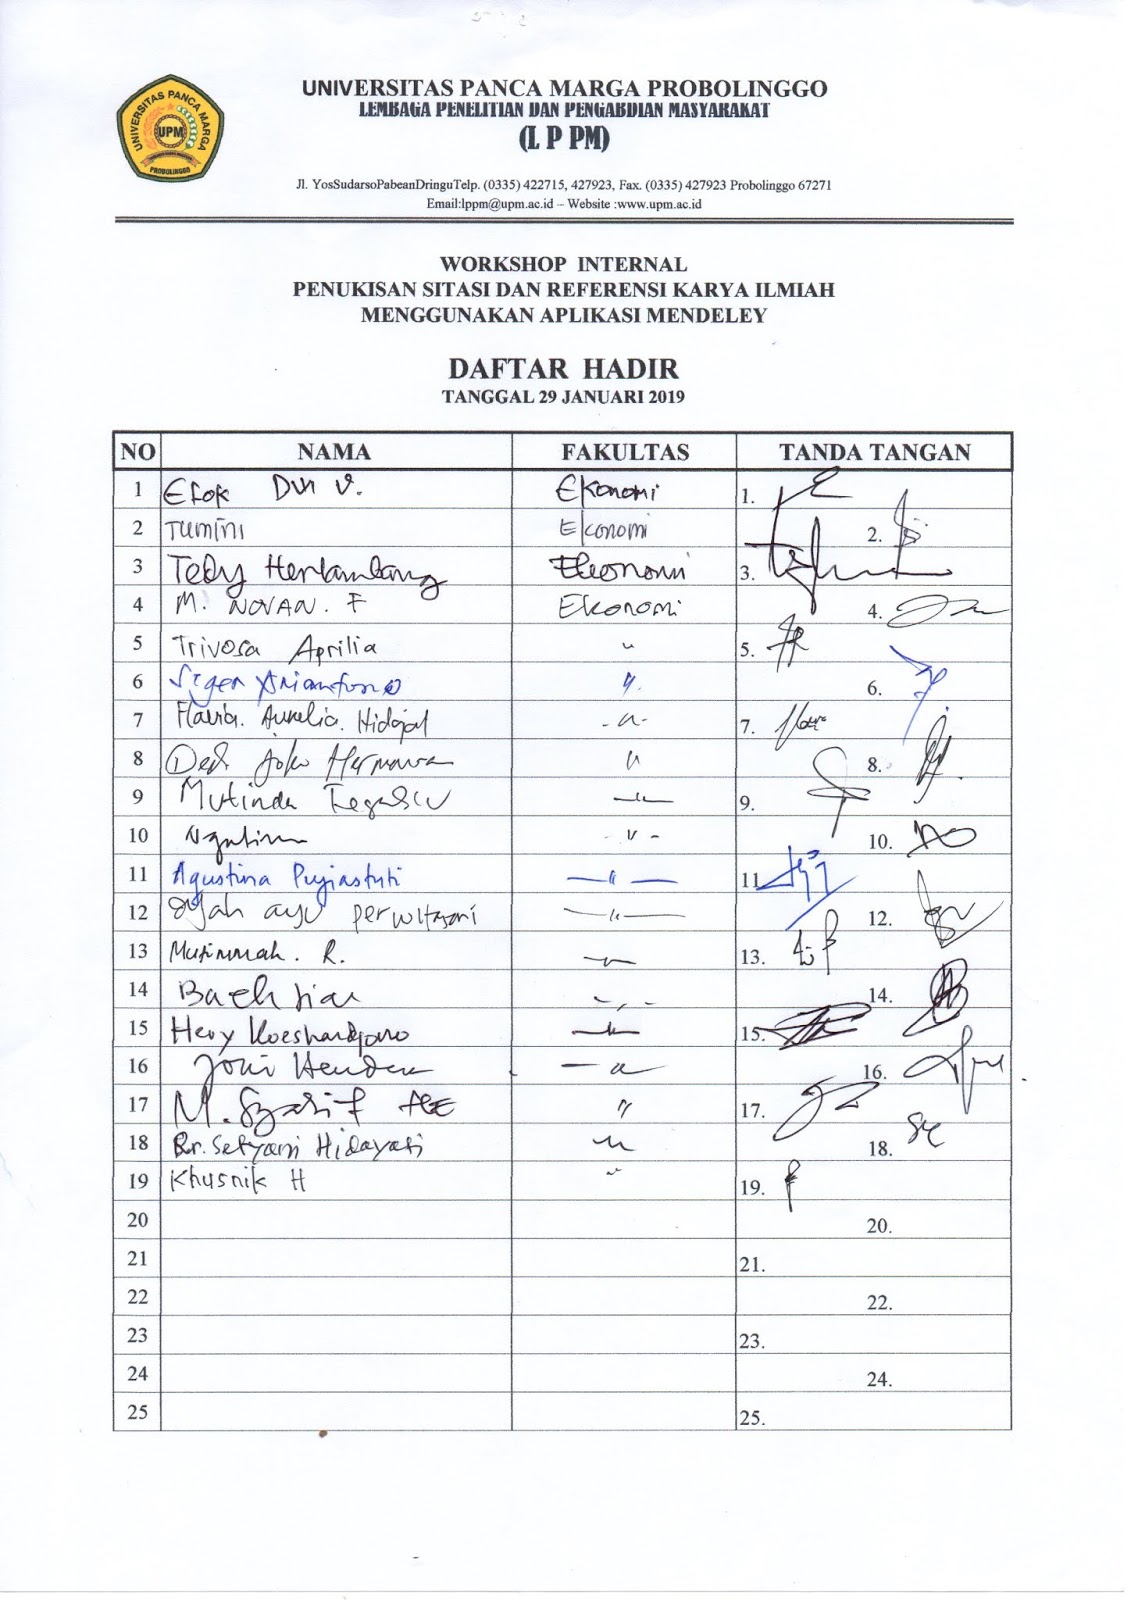 UNIVERSITAS PANCA MARGA
UPM
PROBOLINGGO
UNIVERSITAS PANCA MARGA PROBOLINGGO
LEMBAGA PENELITIAN DAN PENGABDIAN MASYARAKAT
(L P PM)
Jl. YosSudarsoPabeanDringuTelp. (0335) 422715, 427923, Fax. (0335) 427923 Probolinggo 67271
Email:lppm@upm.ac.id – Website :www.upm.ac.id
WORKSHOP INTERNAL
PENUKISAN SITASI DAN REFERENSI KARYA ILMIAH
MENGGUNAKAN APLIKASI MENDELEY
DAFTAR HADIR
TANGGAL 29 JANUARI 2019
NO NAMA FAKULTAS TANDA TANGAN
1 Elok Dwi V. Ekonomi 1.
2 Tumini Ekonomi 2.
3 Tedy Herlambang Ekonomi 3.
4 M. NOVAN. F Ekonomi 4.
5 Trivosa Aprilia " 5.
6 " 6.
7 Flavia. Aurelia. Hidajat -"- 7.
8 Joko Hermawan " 8.
9 Mutinda -"- 9.
10 Ngatimun " - 10.
11 Agustina Pujiastuti -"- 11
12 Dyah ayu perwitasari -"- 12.
13 Mutimmah. R. -"- 13.
14 Bachtiar -"- 14.
15 Hery Koeshardjono -"- 15.
16 Joni Hendra -"- 16.
17 M. Syarif " 17.
18 Rr. Setyani Hidayati " 18.
19 Khusnik H " 19.
20 20.
21 21.
22 22.
23 23.
24 24.
25 25.